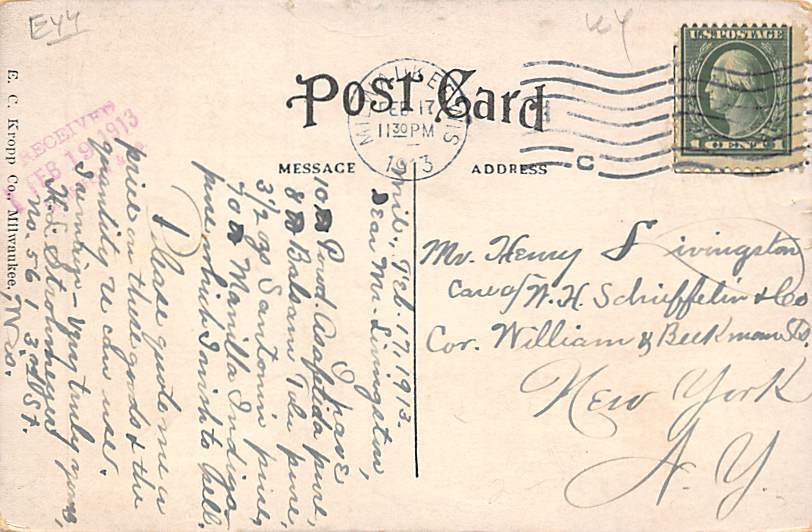 Eyy
U.S. POSTAGE
1 CENT 1
POST CARD
MILWAUKEE, WIS
FEB 17
11 30 PM
1913
C
MESSAGE
ADDRESS
RECEIVED
FEB 19 1913
E. C. Kropp Co., Milwaukee.
Mil., Feb. 17, 1913.
Dear Mr. Livingston,
I have
10 # Powd Asafetida pure,
8 # Balsam Tolu pure,
3 1/2 oz Santonin pure,
40 # Manilla Indigo
pure, which I wish to sell.
Please quote me a
price on these goods & the
quantity u can use.
Samuel - Very truly yours,
H. L. Strohmeyer
No. 561, 3rd St.
Mr. Henry Livingston
Care of W. H. Schieffelin & Co
Cor. William & Beekman Sts,
New York
N. Y.